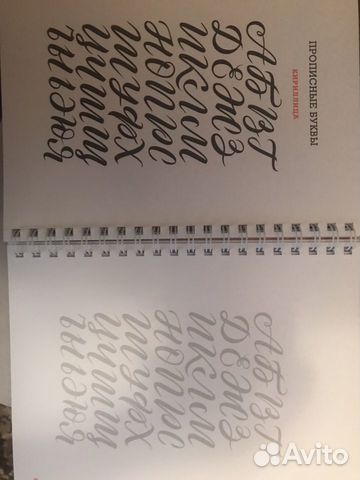 ПРОПИСНЫЕ БУКВЫ
КИРИЛЛИЦА
АБВГ
ДЁЖЗ
ИКЛМ
НОПРС
ТУФХ
ЦЧШЩ
ЪЫЭЮЯ
АБВГ
ДЁЖЗ
ИКЛМ
НОПРС
ТУФХ
ЦЧШЩ
ЪЫЭЮЯ
Avito